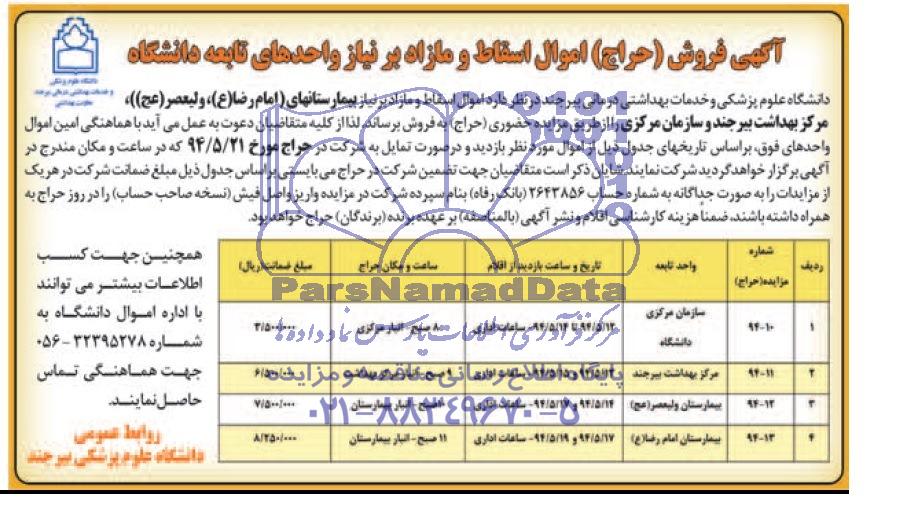 آگهی فروش (حراج) اموال اسقاط و مازاد بر نیاز واحدهای تابعه دانشگاه
دانشگاه علوم پزشکی
و خدمات بهداشتی درمانی بیرجند
معاونت بهداشتی
دانشگاه علوم پزشکی و خدمات بهداشتی درمانی بیرجند در نظر دارد اموال اسقاط و مازاد بر نیاز بیمارستانهای (امام رضا(ع)، ولیعصر(عج))،
مرکز بهداشت بیرجند و سازمان مرکزی را از طریق مزایده حضوری (حراج) به فروش برساند. لذا از کلیه متقاضیان دعوت به عمل می آید با هماهنگی امین اموال
واحدهای فوق، براساس تاریخهای جدول ذیل از اموال مورد نظر بازدید و درصورت تمایل به شرکت در حراج مورخ ۹۴/۵/۲۱ که در ساعت و مکان مندرج در
آگهی برگزار خواهد گردید شرکت نمایند. شایان ذکر است متقاضیان جهت تضمین شرکت در حراج می بایستی براساس جدول ذیل مبلغ ضمانت شرکت در هریک
از مزایدات را به صورت جداگانه به شماره حساب ۲۶۴۳۸۵۶ (بانک رفاه) بنام سپرده شرکت در مزایده واریز و اصل فیش (نسخه صاحب حساب) را در روز حراج به
همراه داشته باشند. ضمناً هزینه کارشناسی اقلام و نشر آگهی (بالمناصفه) بر عهده برنده (برندگان) حراج خواهد بود.
ردیف شماره مزایده(حراج) واحد تابعه تاریخ و ساعت بازدید از اقلام ساعت و مکان حراج مبلغ ضمانت(ریال)
۱ ۹۴-۱۰ سازمان مرکزی دانشگاه ۹۴/۵/۱۲ تا ۹۴/۵/۱۴- ساعات اداری ۸ صبح- انبار مرکزی ۳/۵۰۰/۰۰۰
۲ ۹۴-۱۱ مرکز بهداشت بیرجند ساعات اداری ۹ صبح- انبار مرکز بهداشت ۶/۵۰۰/۰۰۰
۳ ۹۴-۱۲ بیمارستان ولیعصر(عج) ۹۴/۵/۱۴ و ۹۴/۵/۱۷- ساعات اداری ۱۰ صبح- انبار بیمارستان ۷/۵۰۰/۰۰۰
۴ ۹۴-۱۳ بیمارستان امام رضا(ع) ۹۴/۵/۱۷ و ۹۴/۵/۱۹- ساعات اداری ۱۱ صبح- انبار بیمارستان ۸/۲۵۰/۰۰۰
همچنین جهت کسب
اطلاعات بیشتر می توانند
با اداره اموال دانشگاه به
شماره ۳۲۳۹۵۲۷۸ - ۰۵۶
جهت هماهنگی تماس
حاصل نمایند.
روابط عمومی
دانشگاه علوم پزشکی بیرجند
ParsNamadData
مرکز فرآوری اطلاعات پارس نماد داده ها
پایگاه اطلاع رسانی مناقصه و مزایده
۰۲۱-۸۸۳۴۹۶۷۰-۵